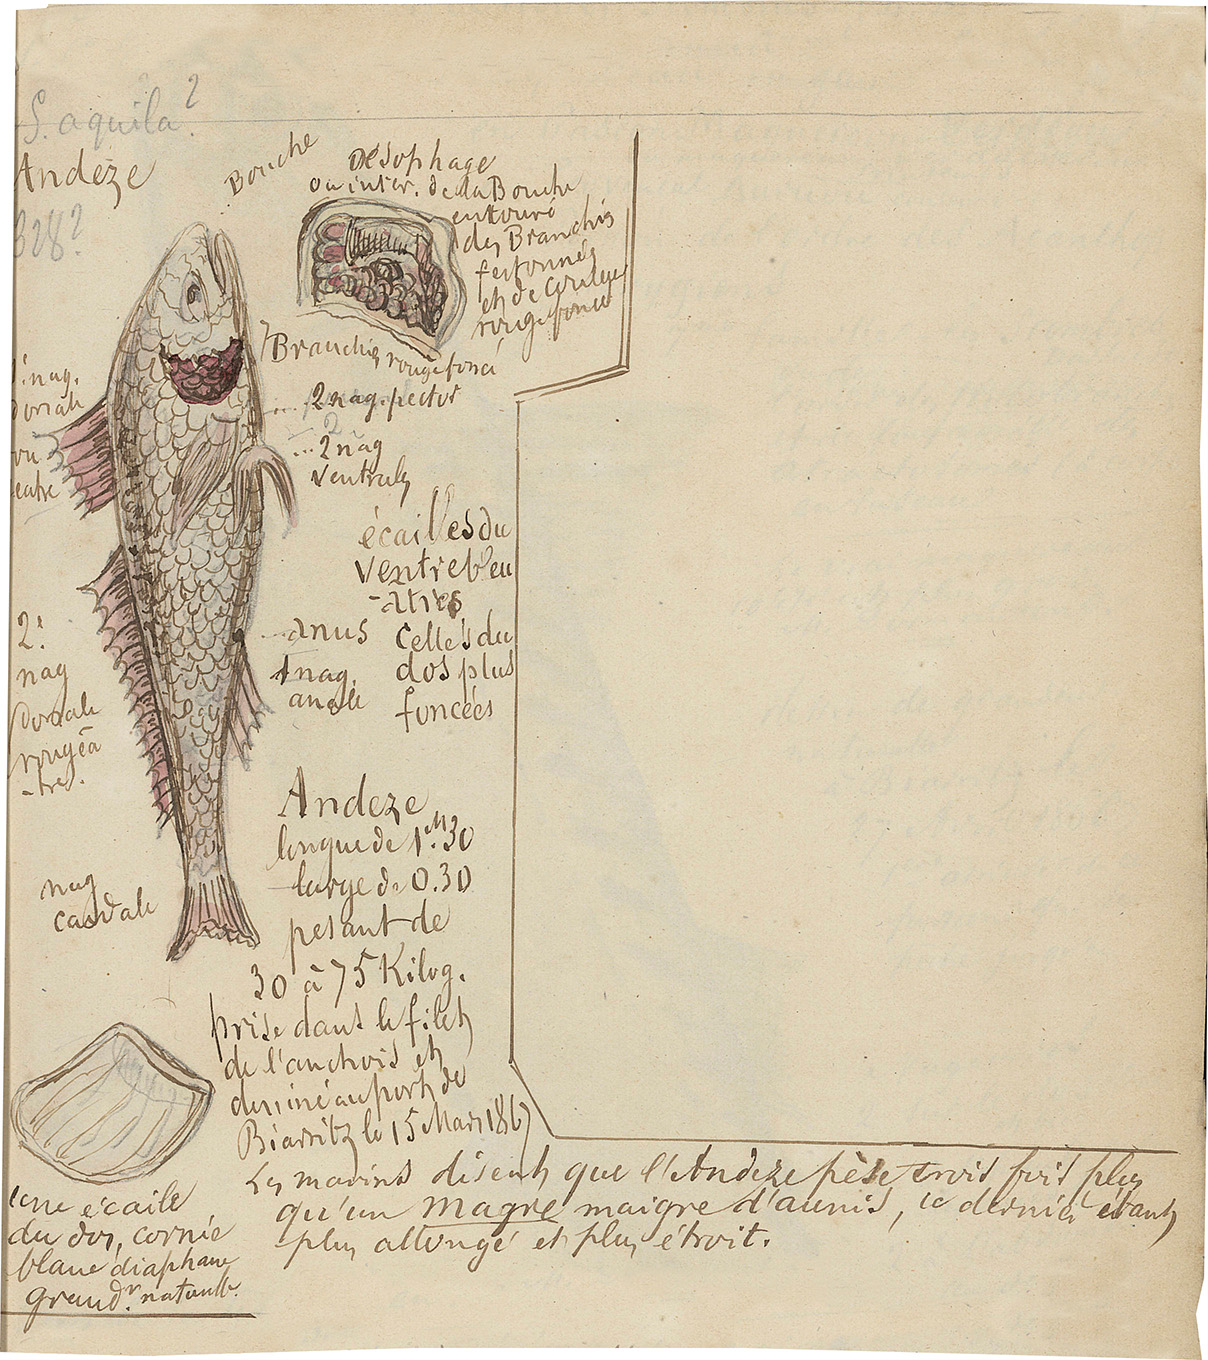 S. aquila?
Andèze
328?
Bouche
Œsophage
ou inter. de la Bouche
entouré
des Branchies
festonnés
et de couleur
rouge foncé
Branchies rouge foncé
1. nag.
dorsale
2 nag. pector
2
2 nag
ventrales
écailles du
ventre bleu
-atres
anus
celles du
dos plus
foncées
1 nag.
anale
2e
nag
dorsale
rougeâ
-tre.
Andeze
longue de 1M.30
large de 0.30
pesant de
30 à 75 Kilog.
prise dans le filet
de l'anchois et
dessiné au port de
Biarritz le 15 Mars 1867
nag
caudale
une écaile
du dos, cornée
blanc diaphane
grandr. naturelle.
Les marins disent que l'Andeze pèse trois fois plus
qu'un magre maigre d'aunis, ce dernier étant
plus allongé et plus étroit.